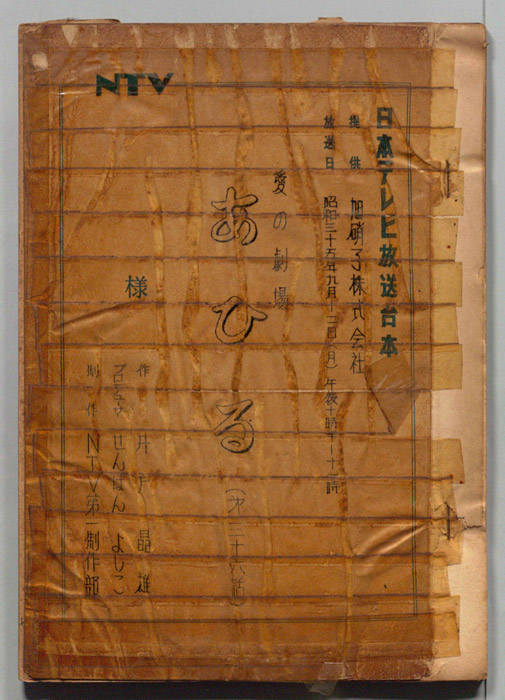 NTV
日本テレビ放送台本
提供 旭硝子株式会社
放送日 昭和三十五年九月十二日(月)午後十時
愛の劇場
あひる
(才三十六話)
様
作 井戸 晶雄
プロデューサー せんぼん よしこ
制作 NTV第一制作部